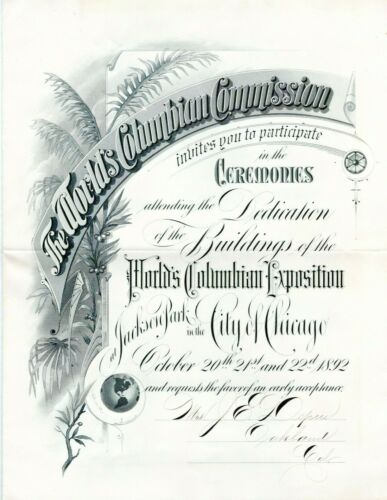 The World's Columbian Commission
invites you to participate
in the
Ceremonies
attending the Dedication
of the Buildings of the
World's Columbian Exposition
at Jackson Park in the City of Chicago
October 20th 21st and 22d 1892
and requests the favor of an early acceptance.
Oakland
Cal